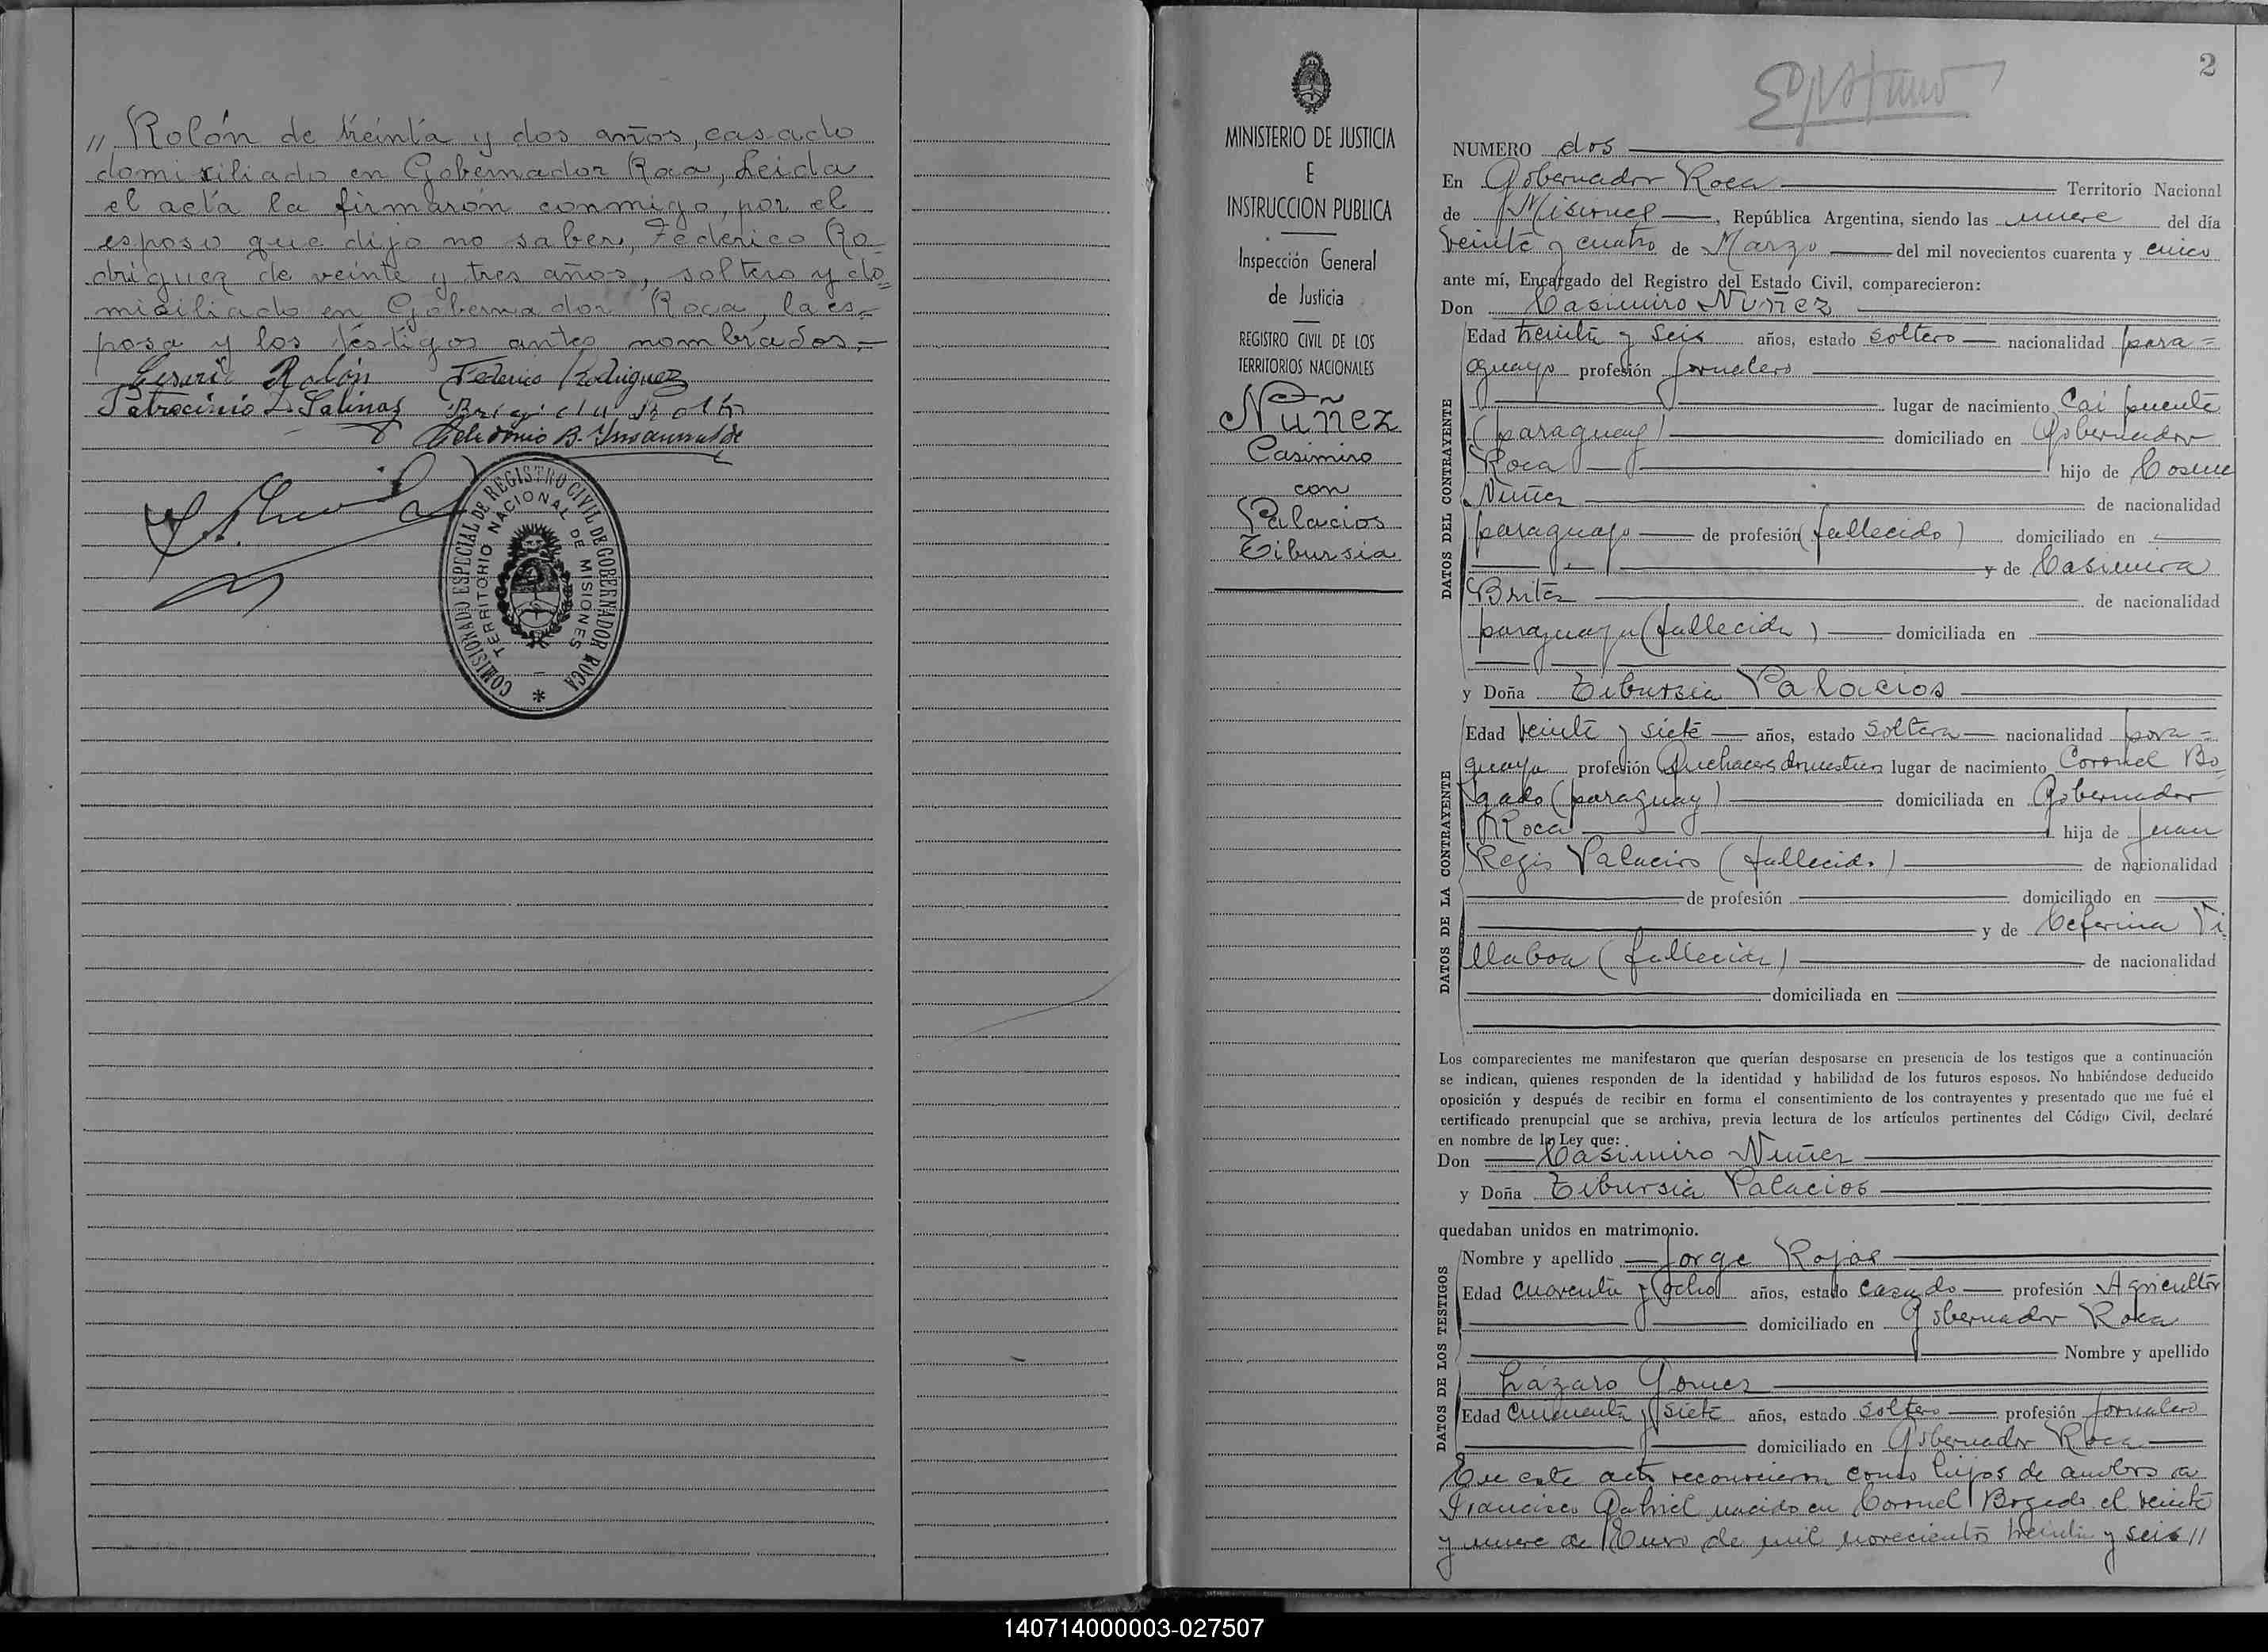 " Rolón de treinta y dos años, casado
domiciliado en Gobernador Roca, Leida
el acta la firmaron conmigo, por el
esposo que dijo no saber, Federico Ro-
driguez de veinte y tres años, soltero y do=
miciliado en Gobernador Roca, la es-
posa y los testigos antes nombrados.—
Rolón Federico Rodriguez
Patrocinio L. Salinas
COMISIONADO ESPECIAL DE REGISTRO CIVIL DE GOBERNADOR ROCA
TERRITORIO NACIONAL DE MISIONES
MINISTERIO DE JUSTICIA
E
INSTRUCCION PUBLICA
Inspección General
de Justicia
REGISTRO CIVIL DE LOS
TERRITORIOS NACIONALES
Nuñez
Casimiro
con
Palacios
Tibursia
2
NUMERO dos
En Gobernador Roca Territorio Nacional
de Misiones, República Argentina, siendo las nueve del día
veinte y cuatro de Marzo del mil novecientos cuarenta y cinco
ante mí, Encargado del Registro del Estado Civil, comparecieron:
Don Casimiro Nuñez
DATOS DEL CONTRAYENTE
Edad treinta y seis años, estado soltero nacionalidad para=
guayo profesión jornalero
lugar de nacimiento Cai puente
(paraguay) domiciliado en Gobernador
Roca hijo de Cosme
Nuñez de nacionalidad
paraguayo de profesión (fallecido) domiciliado en
y de Casimira
Britez de nacionalidad
paraguaya (fallecida) domiciliada en
y Doña Tibursia Palacios
DATOS DE LA CONTRAYENTE
Edad veinte y siete años, estado soltera nacionalidad para=
guaya profesión Quehaceres domesticos lugar de nacimiento Coronel Bo=
gado (paraguay) domiciliada en Gobernador
Roca hija de Juan
Regis Palacios (fallecido) de nacionalidad
de profesión domiciliado en
y de Ceferina Vi=
llaboa (fallecida) de nacionalidad
domiciliada en
Los comparecientes me manifestaron que querían desposarse en presencia de los testigos que a continuación
se indican, quienes responden de la identidad y habilidad de los futuros esposos. No habiéndose deducido
oposición y después de recibir en forma el consentimiento de los contrayentes y presentado que me fué el
certificado prenupcial que se archiva, previa lectura de los artículos pertinentes del Código Civil, declaré
en nombre de la Ley que:
Don Casimiro Nuñez
y Doña Tibursia Palacios
quedaban unidos en matrimonio.
DATOS DE LOS TESTIGOS
Nombre y apellido Jorge Rojas
Edad cuarenta y ocho años, estado casado profesión Agricultor
domiciliado en Gobernador Roca
Nombre y apellido
Lázaro Gomez
Edad cincuenta y siete años, estado soltero profesión jornalero
domiciliado en Gobernador Roca
En este acto reconocieron como hijos de ambos a
Francisco Gabriel nacido en Coronel Bogado el veinte
y nueve de Enero de mil novecientos treinta y seis //
140714000003-027507